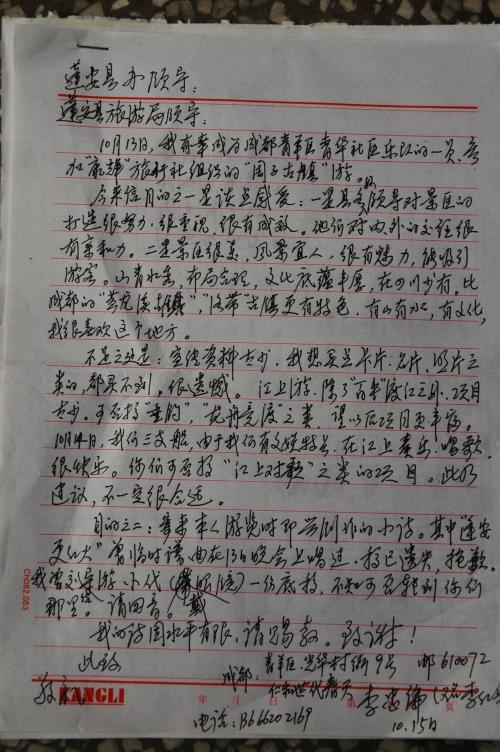 蓬安县办领导：
蓬安县旅游局领导：
10月13日，我有幸成为成都青羊区青华社区乐队的一员，参
加"康辉"旅行社组织的"周子古镇"游。
今来信目的之一是谈点感受：一是县各领导对景区的
打造很努力，很重视，很有成效。他们对内外的交往很
有亲和力。二是景区很美，风景宜人，很有魅力，能吸引
游客。山青水秀，布局合理，文化底蕴丰厚，在四川少有。比
成都的"黄龙溪"，"洛带"古镇更有特色，有山有水，有文化，
我很喜欢这个地方。
不足之处是：宣传资料太少，我想买点卡片、名片、照片之
类的，都买不到，很遗憾。江上游，除了"百牛"渡江之外，项目
太少。可否搞"垂钓"、"龙舟竞渡"之类，望以后项目更丰富。
10月14日，我们三支船，由于我们有文娱特长，在江上奏乐，唱歌，
很快乐。你们可否搞"江上对歌"之类的项目。此乃
建议，不一定很合适。
目的之二：寄来本人游览时即兴创作的小诗。其中蓬安
更红火"曾临时谱曲在13日晚会上唱过，稿已遗失，抱歉。
我曾交导游小代（戴）一份底稿，不知可否转到你们
那里。请回音。
我的诗国水平有限，请赐教。致谢！
此致
敬礼
成都：青羊区光华村街9号 邮610072
仁和世代春天
KANGLI
年 月 日 第 页
电话：13666202169
10.15日
Ch082.083